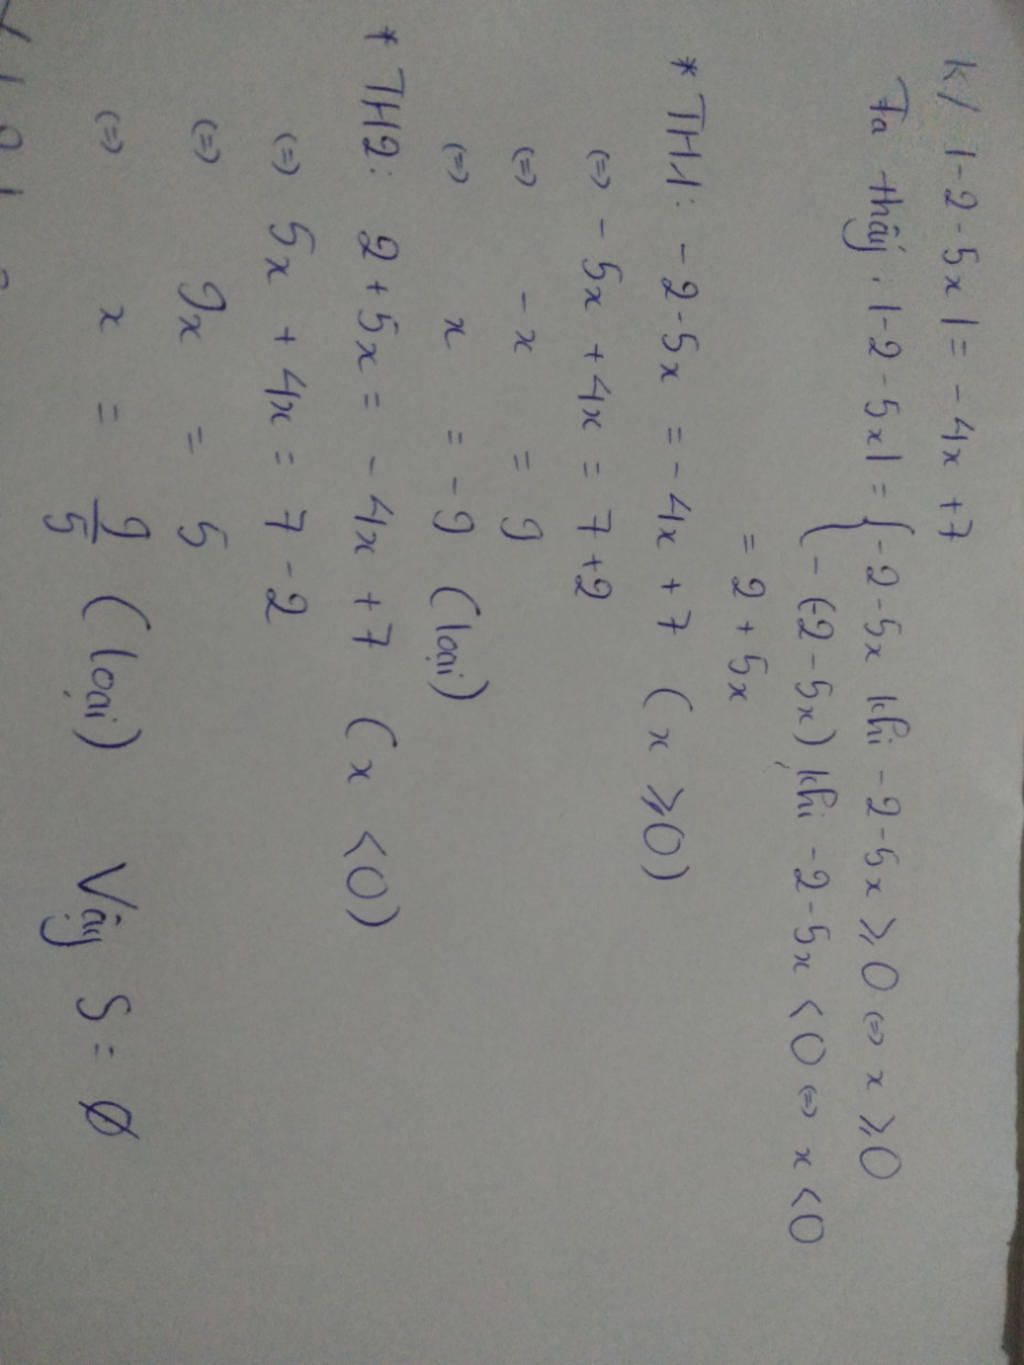 k/ |-2-5x| = -4x+7
Ta thấy: |-2-5x| = { -2-5x khi -2-5x ≥ 0 ⇔ x ≥ 0
-(-2-5x) khi -2-5x < 0 ⇔ x < 0
= 2+5x
* TH1: -2-5x = -4x+7 (x ≥ 0)
⇔ -5x+4x = 7+2
⇔ -x = 9
⇔ x = -9 (loại)
* TH2: 2+5x = -4x+7 (x < 0)
⇔ 5x+4x = 7-2
⇔ 9x = 5
⇔ x = 9/5 (loại) Vậy S = ∅